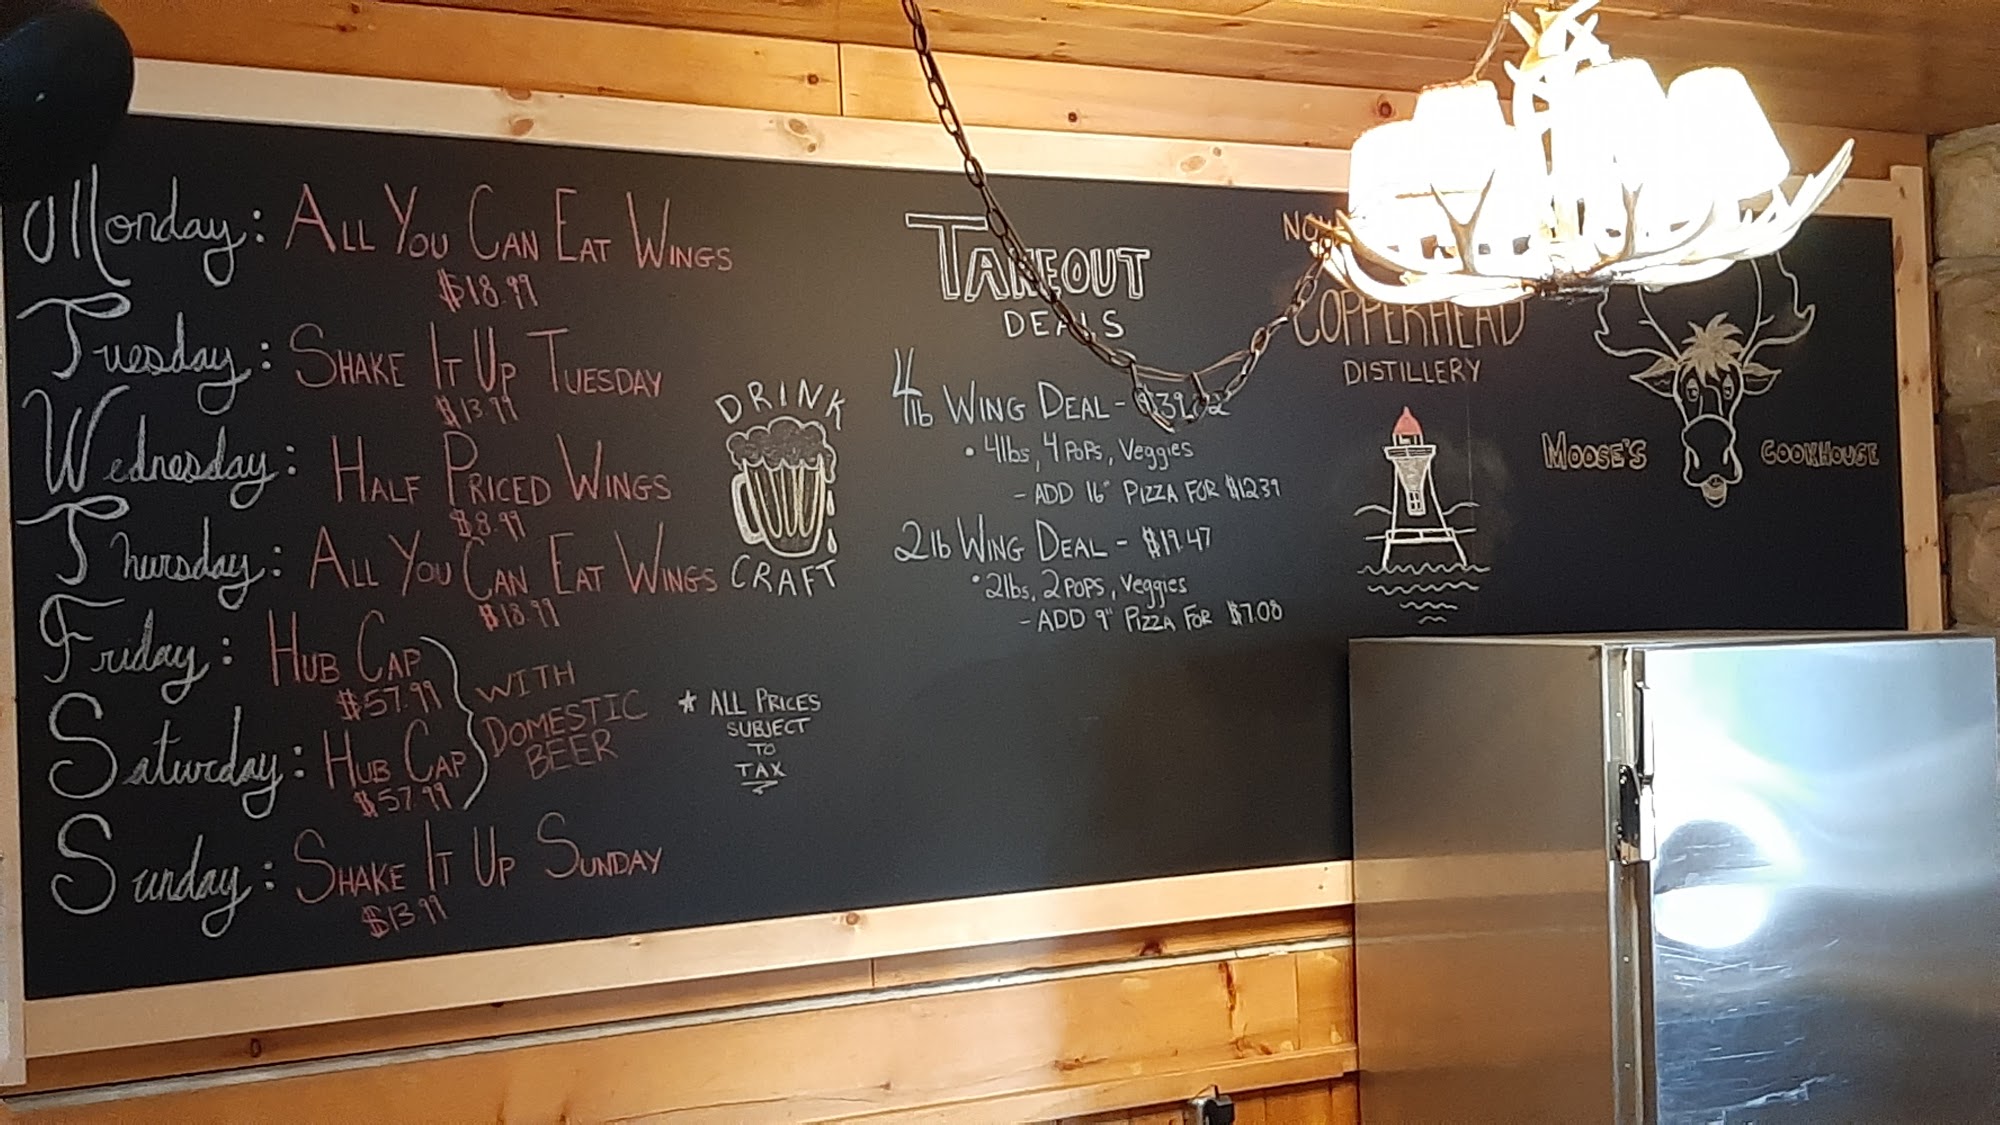 Monday: ALL YOU CAN EAT WINGS
$18.99
Tuesday: SHAKE IT UP TUESDAY
$13.99
Wednesday: HALF PRICED WINGS
$8.99
Thursday: ALL YOU CAN EAT WINGS
$18.99
Friday: HUB CAP
$57.99
Saturday: HUB CAP
$57.99
WITH
DOMESTIC
BEER
Sunday: SHAKE IT UP SUNDAY
$13.99
DRINK
CRAFT
* ALL PRICES
SUBJECT
TO
TAX
TAKEOUT
DEALS
4lb WING DEAL -
• 4lbs, 4 POPS, Veggies
- ADD 16" PIZZA FOR $12.39
2lb WING DEAL - $19.47
• 2lbs, 2 POPS, Veggies
- ADD 9" PIZZA FOR $7.08
COPPERHEAD
DISTILLERY
MOOSE'S COOKHOUSE